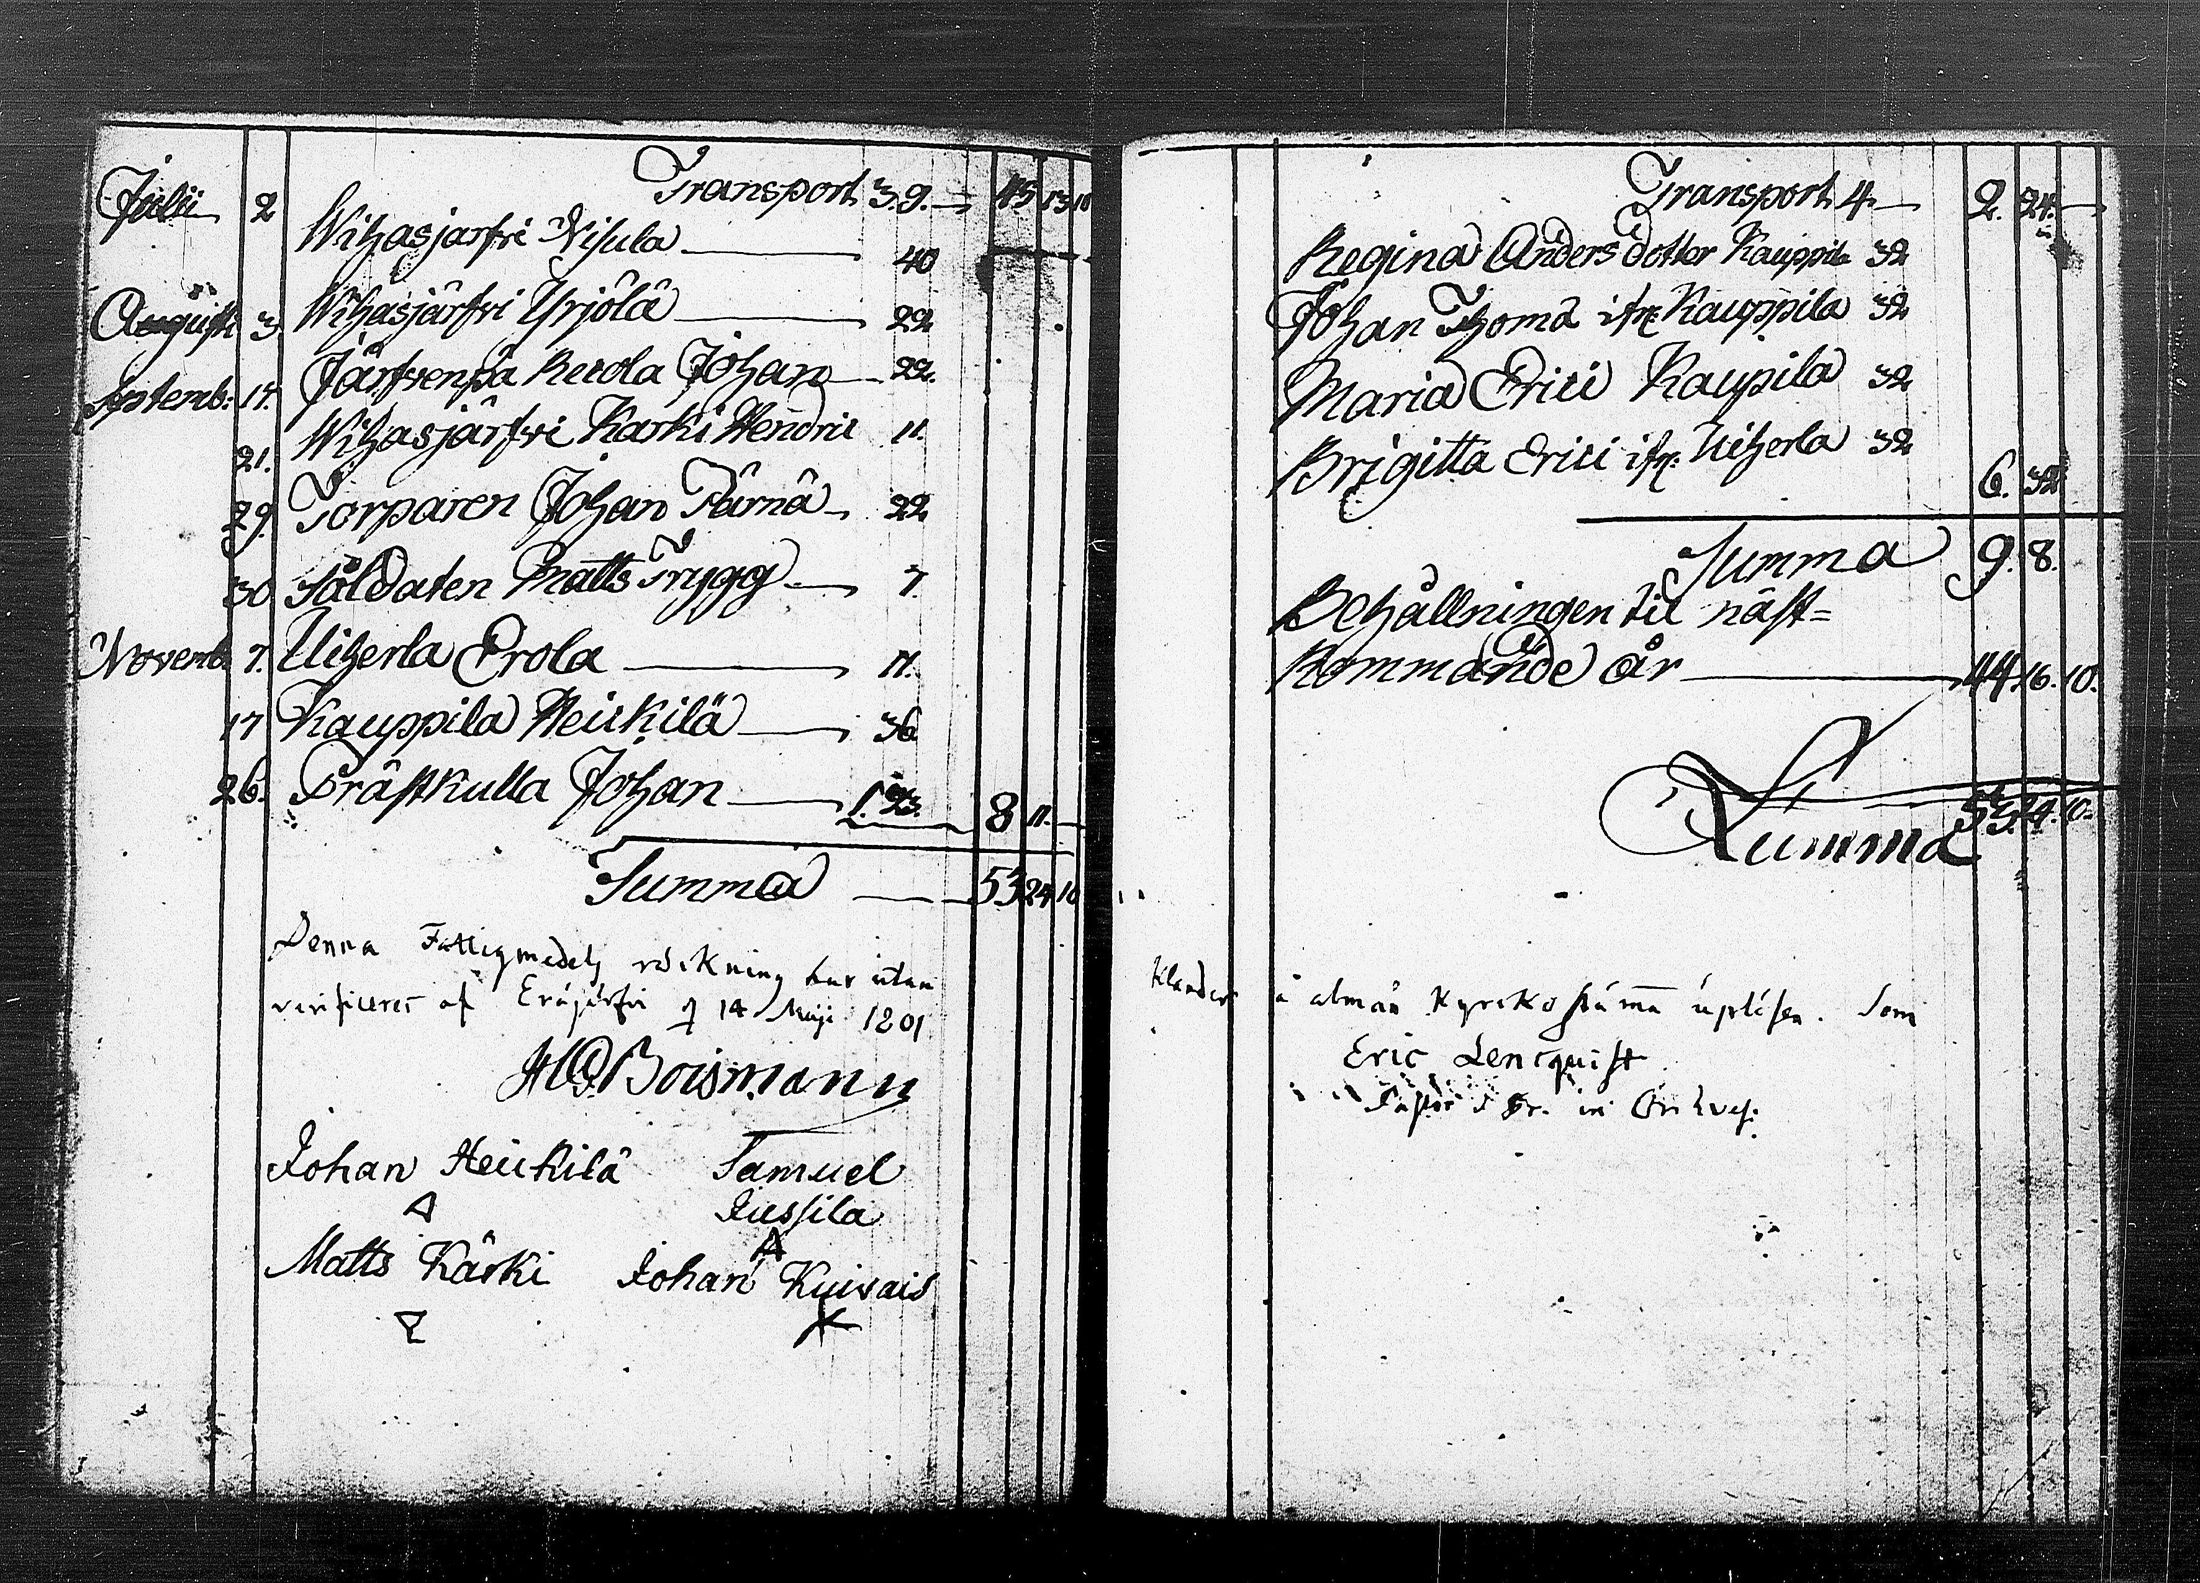 Transport 3. 9. — 45 13 10
Julii 2 Wihasjärfvi Nisula — 40
Augusti 3 Wihasjärfvi Yrjölä — 22
Septemb: 14. Järfvenpä Rekola Johan — 22.
21. Wihasjärfvi Karki Hendric 11.
29. Torparen Johan Tärnä — 22
30 Soldaten Matts Trygg — 7.
Novemb. 7. Uiherla Erola — 11.
17 Kauppila Heickilä — 36
26. Prästkulla Johan — 1. 23. 8 11. —
Summa — 53 24 10
Denna Fattigmedels räkning har utan
verificeres af Eräjärfvi d 14 Maji 1801
Boismann
Johan Heickilä Samuel
Jussila
Matts Kärki Johan Kuivais
Transport 4. — 2. 24. —
Regina Anders dotter Kauppila 32
Johan Thoma ifr. Kauppila 32
Maria Erici Kaupila 32
Brigitta Erici ifr. Uiherla 32
6. 32
Summa 9. 8.
Behållningen til näst=
kommande år — 44. 16. 10.
Summa 53. 24. 10.
klander å alman Kyrko stäma upläsen. Som
Eric Lencquist
Pastor in Orihves: